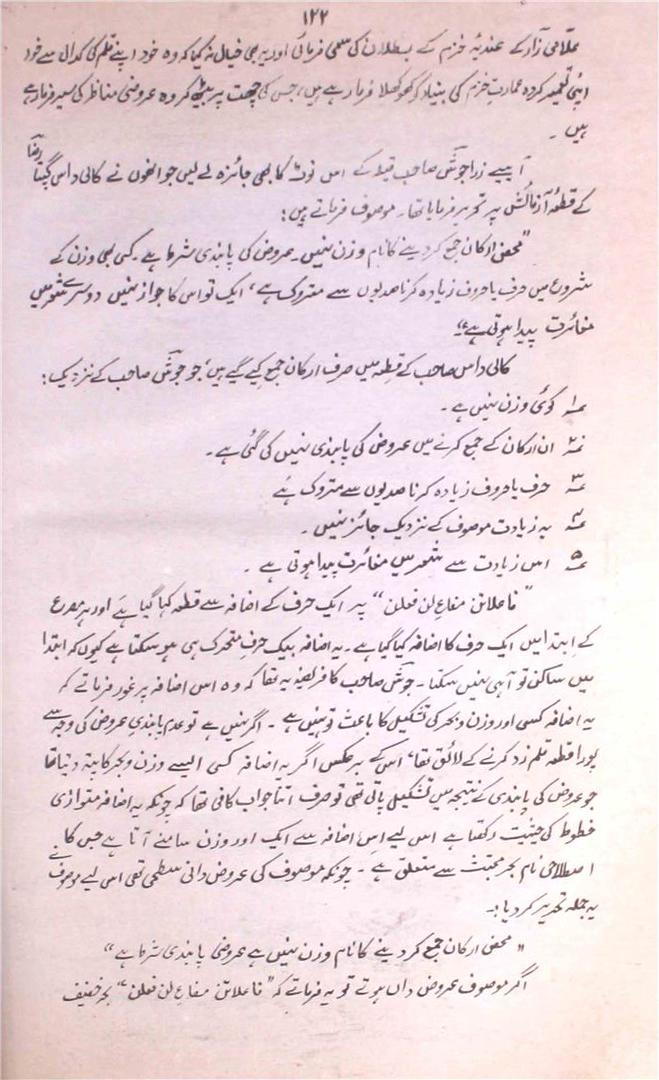 ۱۲۲
علامی زار کے عندیہ خزم کے بطلان کی سعی فرمائی اور یہ بھی خیال نہ کیا کہ وہ خود اپنے قلم کی کدال سے خود
اپنی تعمیر کردہ عمارتِ خزم کی بنیاد کو کھوکھلا فرما رہے ہیں، جس کی چھت پر بیٹھ کر وہ عروضی مناظر کی سیر فرما رہے
ہیں۔
آیئے ذرا جوشؔ صاحب قبلہ کے اس نوٹ کا بھی جائزہ لے لیں جو انھوں نے کالی داس گپتا رضاؔ
کے قطعۂ آزمائش پر تحریر فرمایا تھا۔ موصوف فرماتے ہیں:
"محض ارکان جمع کر دینے کا نام وزن نہیں۔ عروض کی پابندی شرط ہے۔ کسی بھی وزن کے
شروع میں حرف یا حروف زیادہ کرنا صدیوں سے متروک ہے، ایک تو اس کا جواز نہیں دوسرے شعر میں
مغائرت پیدا ہوتی ہے"
کالی داس صاحب کے قطعہ میں صرف ارکان جمع کیے گیے ہیں، جو جوشؔ صاحب کے نزدیک:
۱ کوئی وزن نہیں ہے۔
۲ ان ارکان کے جمع کرنے میں عروض کی پابندی نہیں کی گئی ہے۔
۳ حرف یا حروف زیادہ کرنا صدیوں سے متروک ہے
۴ یہ زیادت موصوف کے نزدیک جائز نہیں۔
۵ اس زیادت سے شعر میں مغائرت پیدا ہوتی ہے۔
"فاعلاتن مفاع لن فعلن" پر ایک حرف کے اضافہ سے قطعہ کہا گیا ہے اور ہر مصرع
کے ابتدا میں ایک حرف کا اضافہ کیا گیا ہے۔ یہ اضافہ بیک حرفِ متحرک ہی ہو سکتا ہے کیوں کہ ابتدا
میں ساکن تو آ ہی نہیں سکتا۔ جوشؔ صاحب کا فریضہ یہ تھا کہ وہ اس اضافہ پر غور فرماتے کہ
یہ اضافہ کسی اور وزن و بحر کی تشکیل کا باعث تو نہیں ہے۔ اگر نہیں ہے تو عدم پابندیِ عروض کی وجہ سے
پورا قطعہ قلم زد کرنے کے لائق تھا، اس کے برعکس اگر یہ اضافہ کسی ایسے وزن و بحر کا پتہ دیتا تھا
جو عروض کی پابندی کے نتیجہ میں تشکیل پاتی تھی تو صرف اتنا جواب کافی تھا کہ چونکہ یہ اضافہ متوازی
خطوط کی حیثیت رکھتا ہے اس لیے اس اضافہ سے ایک اور وزن سامنے آتا ہے جس کا
اصطلاحی نام بحر مجتث سے متعلق ہے۔ چونکہ موصوف کی عروض دانی سطحی تھی اس لیے موصوف نے
یہ جملہ تحریر کر دیا:۔
"محض ارکان جمع کر دینے کا نام وزن نہیں ہے عروضی پابندی شرط ہے"
اگر موصوف عروض داں ہوتے تو یہ فرماتے کہ "فاعلاتن مفاع لن فعلن" بحر خفیف